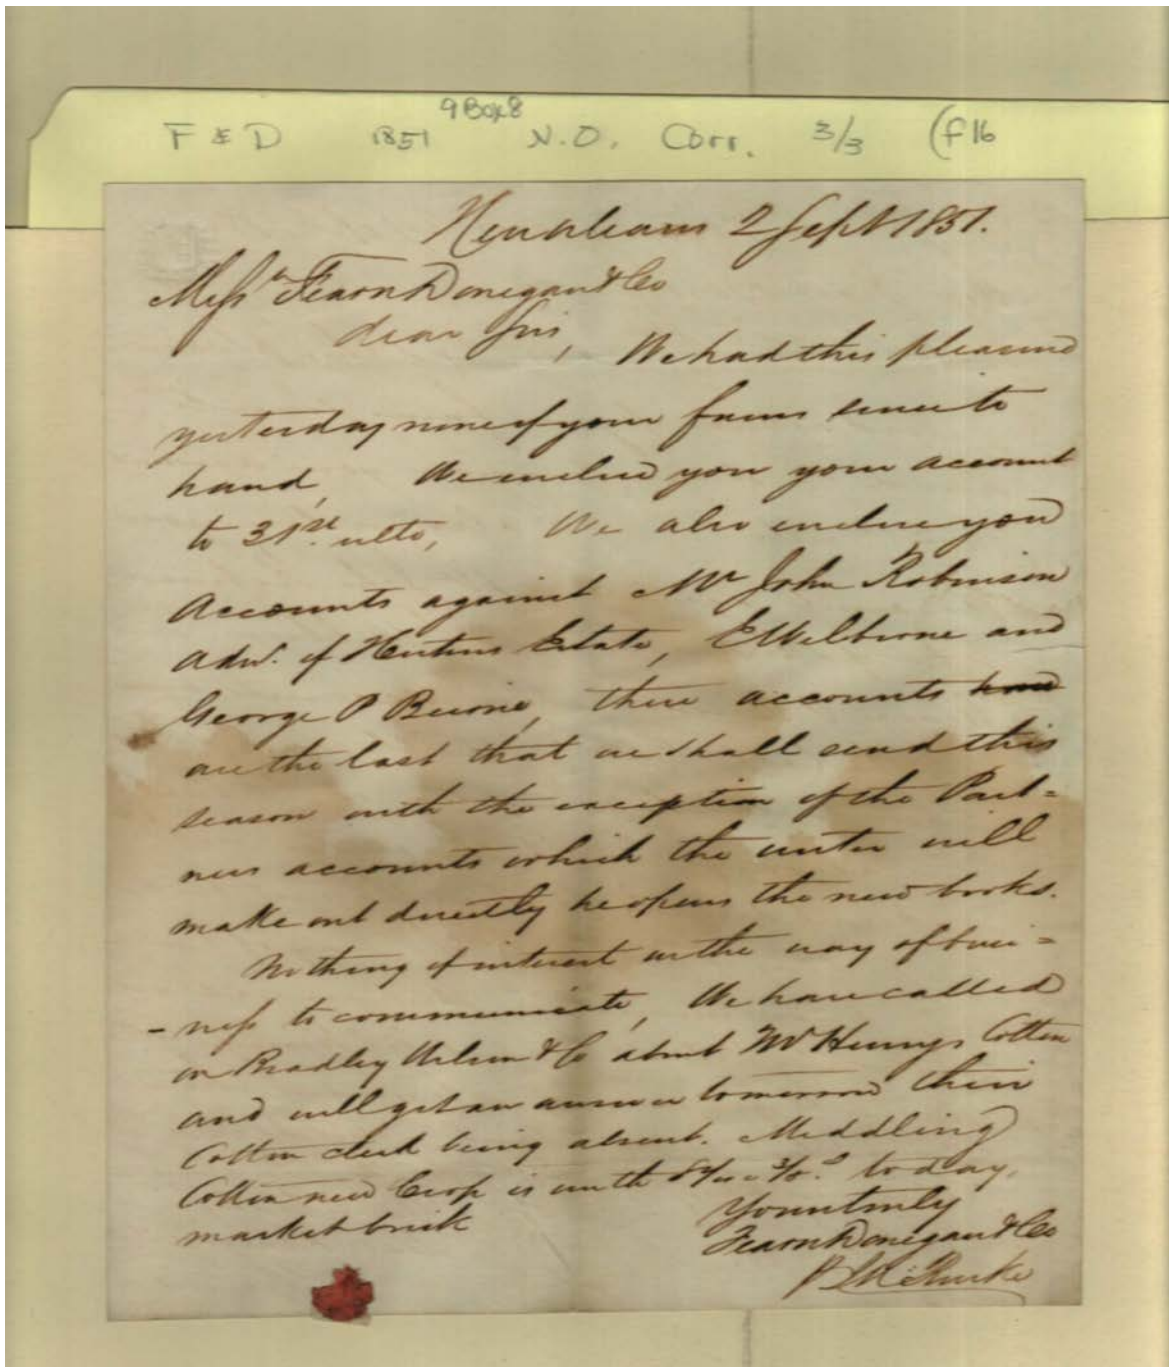 9 Box 8
F & D 1851 N.O. Corr. 3/3 (f16
New Orleans 2 Sept 1851.
Messrs Fearn Donegan & Co
dear Sirs, We had this pleasure
yesterday none of your favors since to
hand, We enclose you your account
to 31st. ulto, We also enclose you
Accounts against Mr John Robinson
Adm. of Estate, E Welborne and
George P Beirne, these accounts
are the last that we shall send this
season with the exception of the Part=
ners accounts which the writer will
make out directly he opens the new books.
Nothing of interest in the way of busi=
-ness to communicate, We have called
on Bradley Wilson & Co about McHenrys Cotton
and will get an answer tomorrow their
Cotton clerk being absent. Middling
Cotton new Crop is worth today,
market brisk
Yours truly
Fearn Donegan & Co